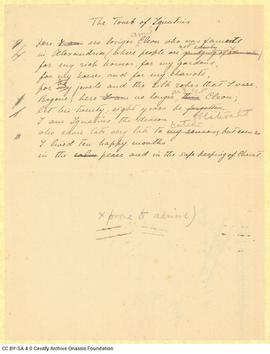 The Tomb of Ignatius
Here I am no longer Cleon who was famous
in Alexandria (where people are
for my rich homes, for my gardens,
for my horses and for my chariots,
for my jewels and the silk robes that I wore.
Begone; here I am no longer Cleon;
Let his twenty eight years be forgotten.
I am Ignatius, the deacon
who came late, very late to my senses; but even so
I lived ten happy months
in the calm peace and in the safe keeping of Christ
x prone to admire)
CC BY-SA 4.0 Cavafy Archive Onassis Foundation